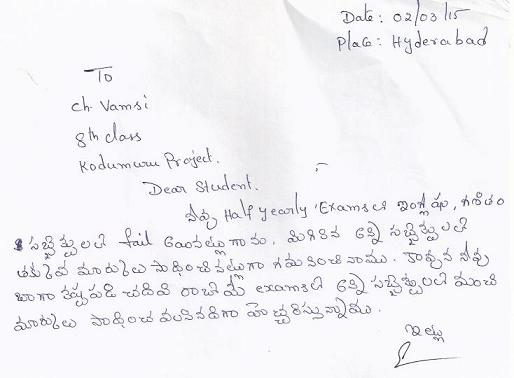 Date: 02/03/15
Place: Hyderabad
To
Ch. Vamsi
8th class
Kodumuru Project.
Dear Student.
నీవు Half yearly Examsలో ఇంగ్లీషు, గణితం
సబ్జెక్టులలో fail అయినట్లుగాను. మిగిలిన అన్ని సబ్జెక్టులలో
తక్కువ మార్కులు సాధించినట్లుగా గమకించినాము. కావున నీవు
బాగా కష్టపడి చదివి రాబోయే examsలో అన్ని సబ్జెక్టులలో మంచి
మార్కులు సాధించ వలసినదిగా హెచ్చరిస్తున్నాము.
ఇట్లు